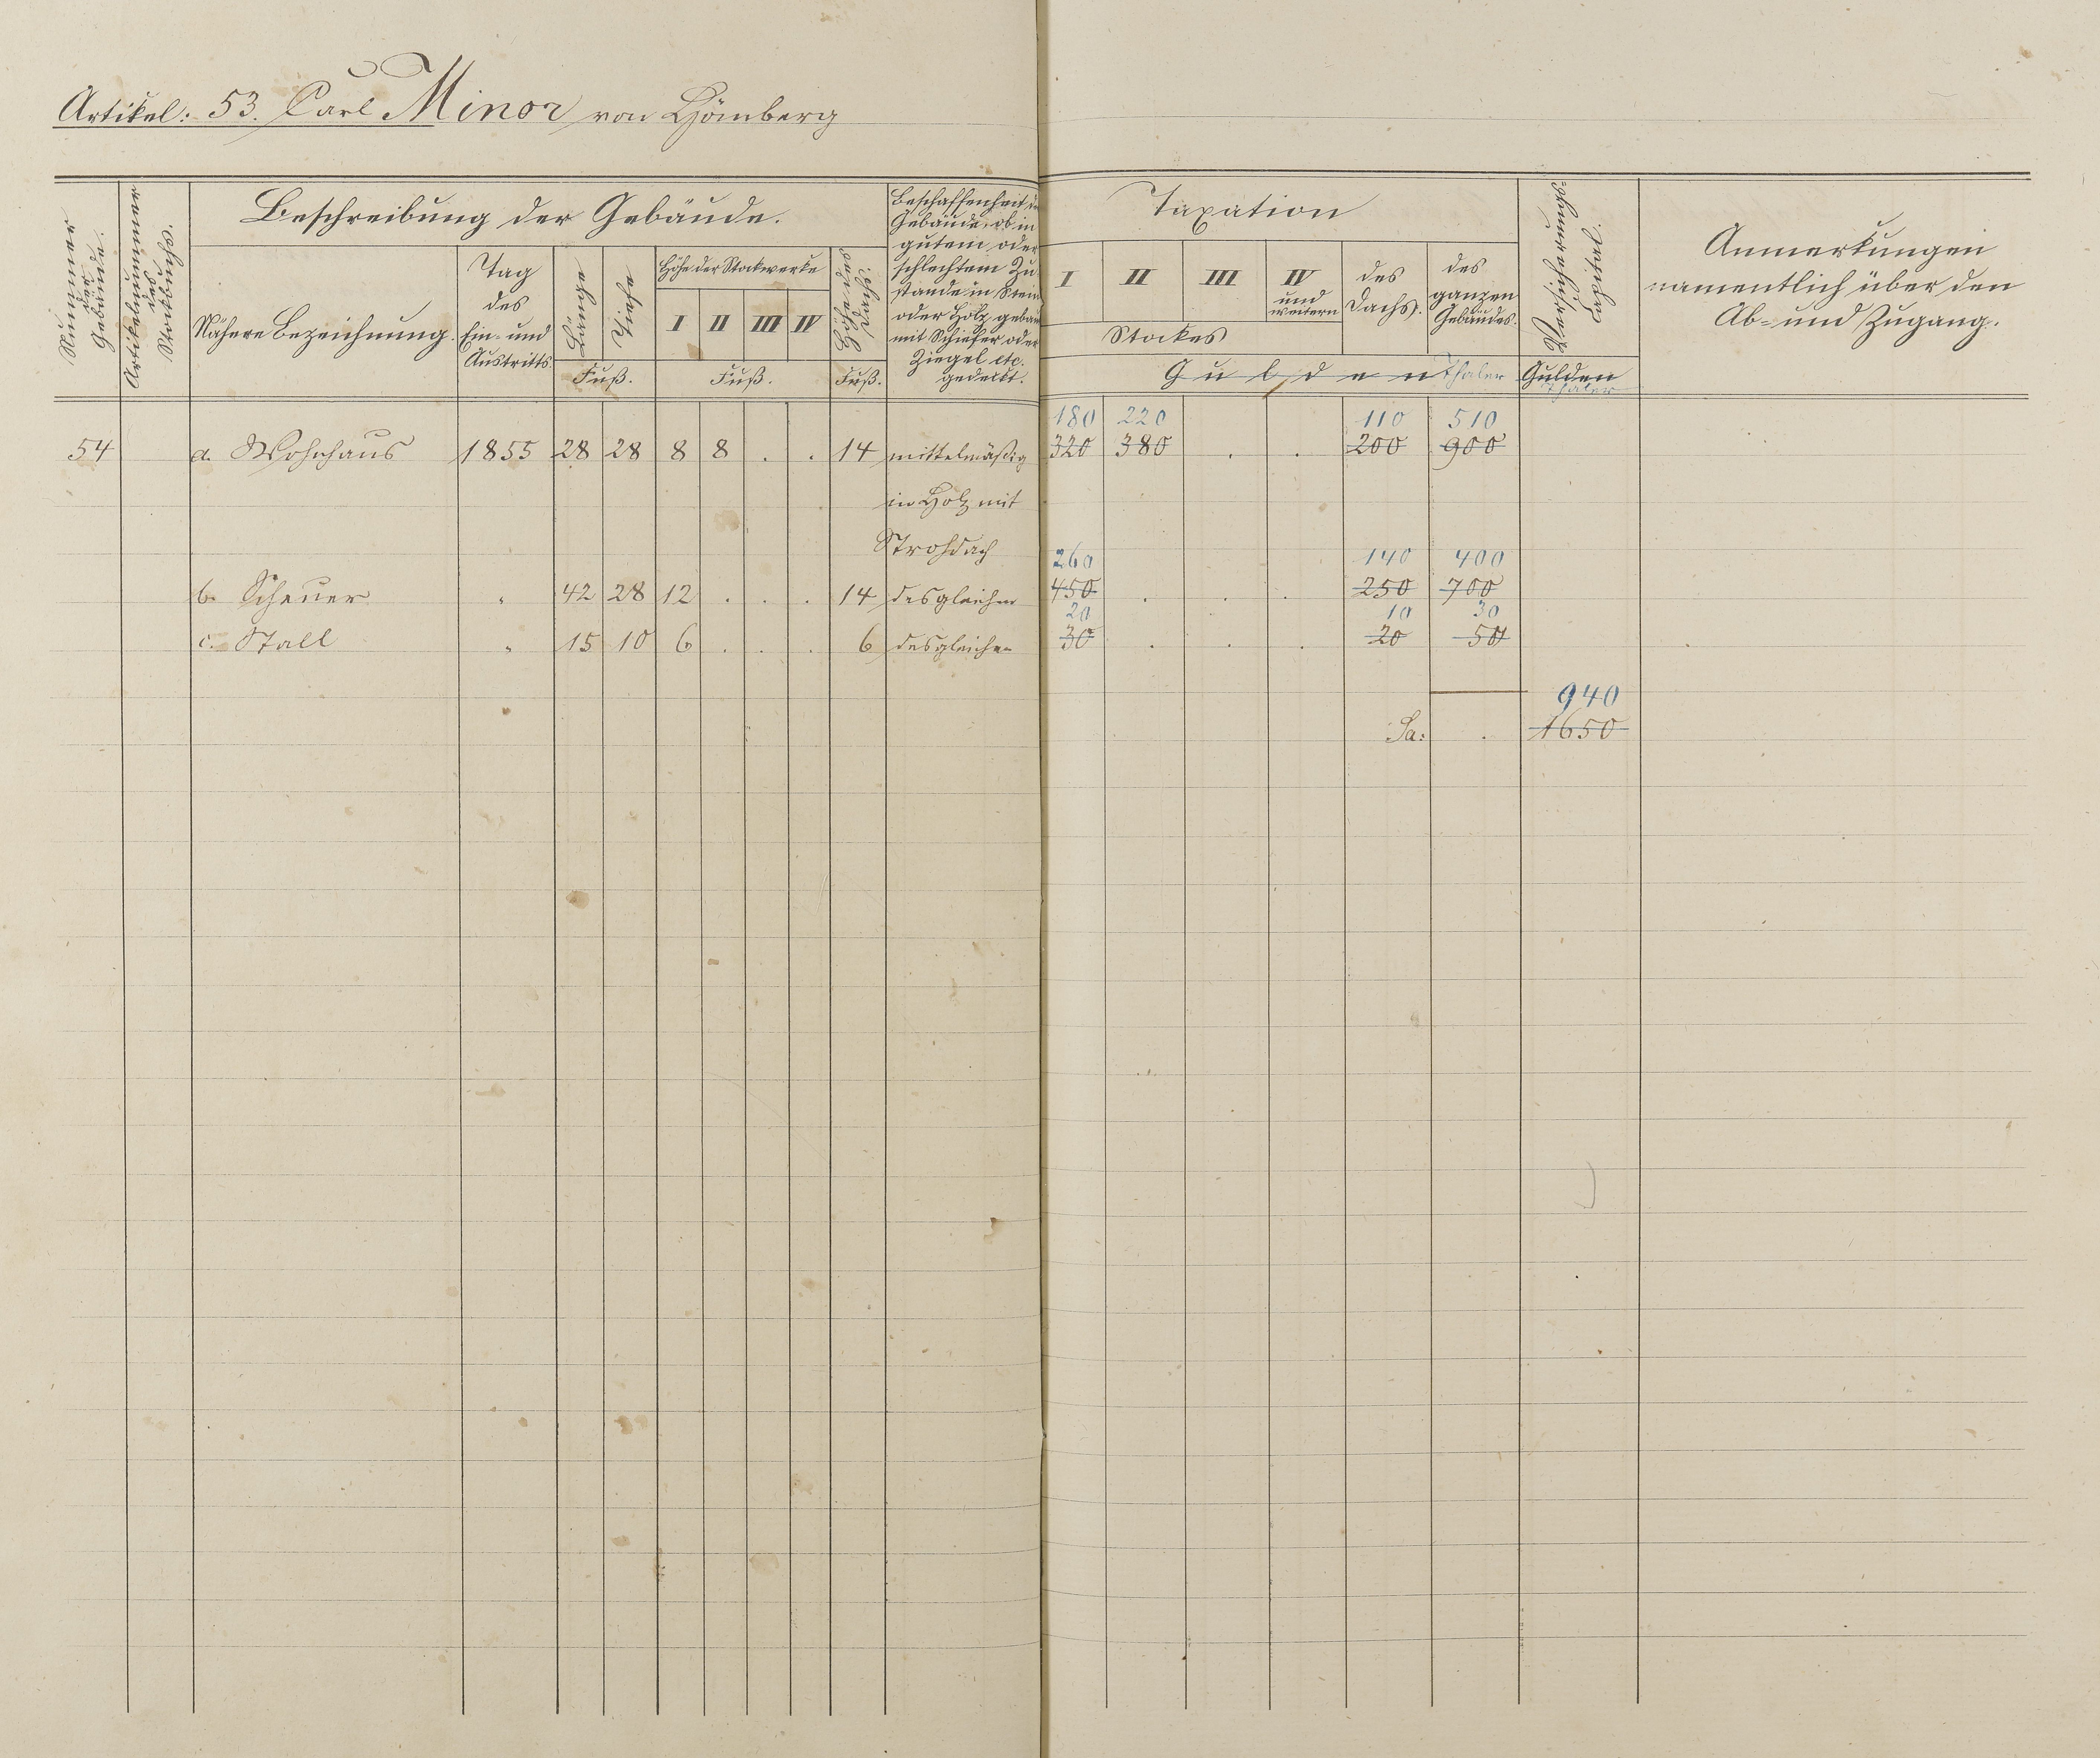 Artikel: 53. Carl Minor von Hömberg
Nummer der Gebäude.
Artikelnummer des Stockbuchs.
Beschreibung der Gebäude.
Nähere Bezeichnung.
Tag des Ein- und Austritts.
Länge
Tiefe
Fuß.
Höhe der Stockwerke
I II III IV
Fuß.
Höhe des Dachs.
Fuß.
Beschaffenheit der
Gebäude, ob in
gutem oder
schlechtem Zu-
stande in Stein
oder Holz gebaut
mit Schiefer oder
Ziegel etc.
gedeckt.
Taxation
I II III IV und weitern
Stockes
des Dachs.
des ganzen Gebäudes.
Gulden Thaler
Versicherungs-Capital.
Gulden
Thaler
Anmerkungen
namentlich über den
Ab- und Zugang.
180 220 110 510
54 a. Wohnhaus 1855 28 28 8 8 . . 14 mittelmäßig 320 380 . . 200 900
in Holz mit
Strohdach
260 140 400
b. Scheuer " 42 28 12 . . . 14 desgleichen 450 . . . 250 700
20 10 30
c. Stall " 15 10 6 . . . 6 desgleichen 30 . . . 20 50
940
Sa: . 1650